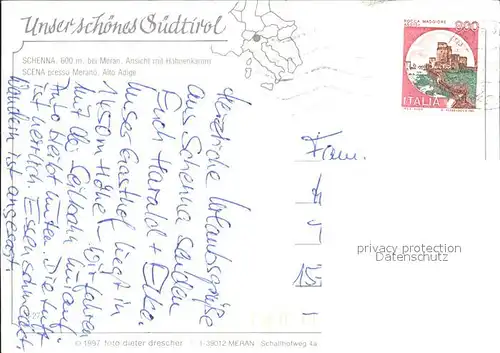 Unser schönes Südtirol
SCHENNA, 600 m, bei Meran. Ansicht mit Hahnenkamm
SCENA presso Merano, Alto Adige
ROCCA MAGGIORE
ITALIA
Herzliche Urlaubsgrüße
aus Schenna senden
Euch Harald + Elke.
Unser Gasthof liegt in
1450 m Höhe. Wir fahren
mit der Seilbahn rauf.
Auto bleibt unten. Die Luft
ist herrlich. Essen schmeckt.
Wandern ist angesagt.
Fam.
15
privacy protection
Datenschutz
© 1997 foto dieter drescher
I-39012 MERAN
Schallhofweg 4a